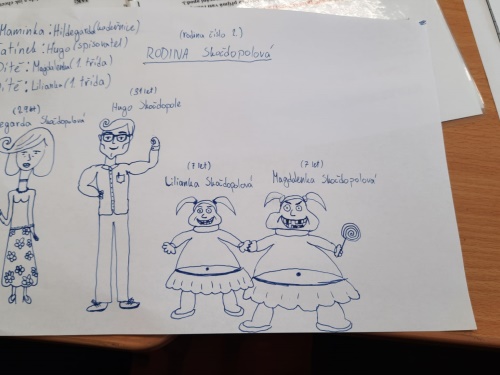 Maminka: Hildegarda (kadeřnice)
Tatínek: Hugo (spisovatel)
Dítě: Magdalenka (1. třída)
Dítě: Lilianka (1. třída)
(rodina číslo 2.)
RODINA Skočdopolová
(29 let)
egarda Skočdopolová
(31 let)
Hugo Skočdopole
(7 let)
Lilianka Skočdopolová
(7 let)
Magdalenka Skočdopolová